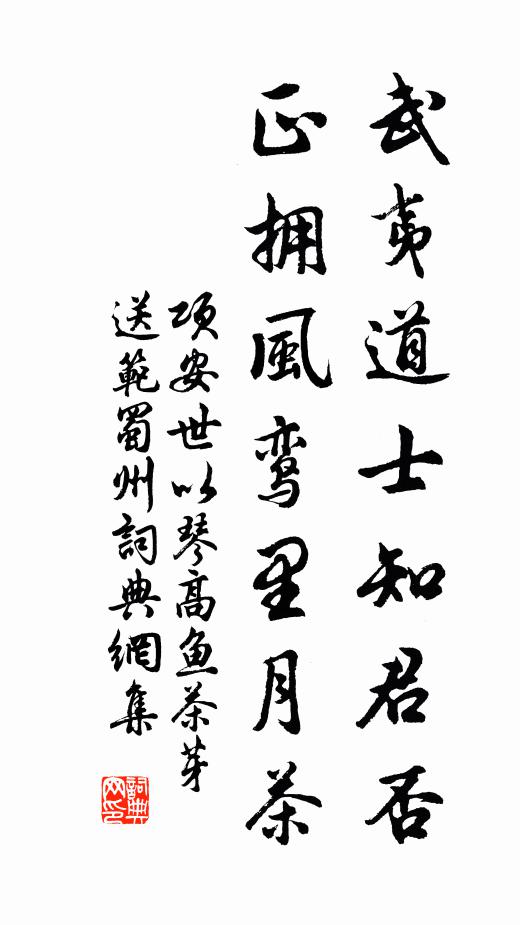 武夷道士知君否
正拥風鸾里月茶
项安世以琴高鱼茶芽
送範蜀州詞典網集
詞典网印